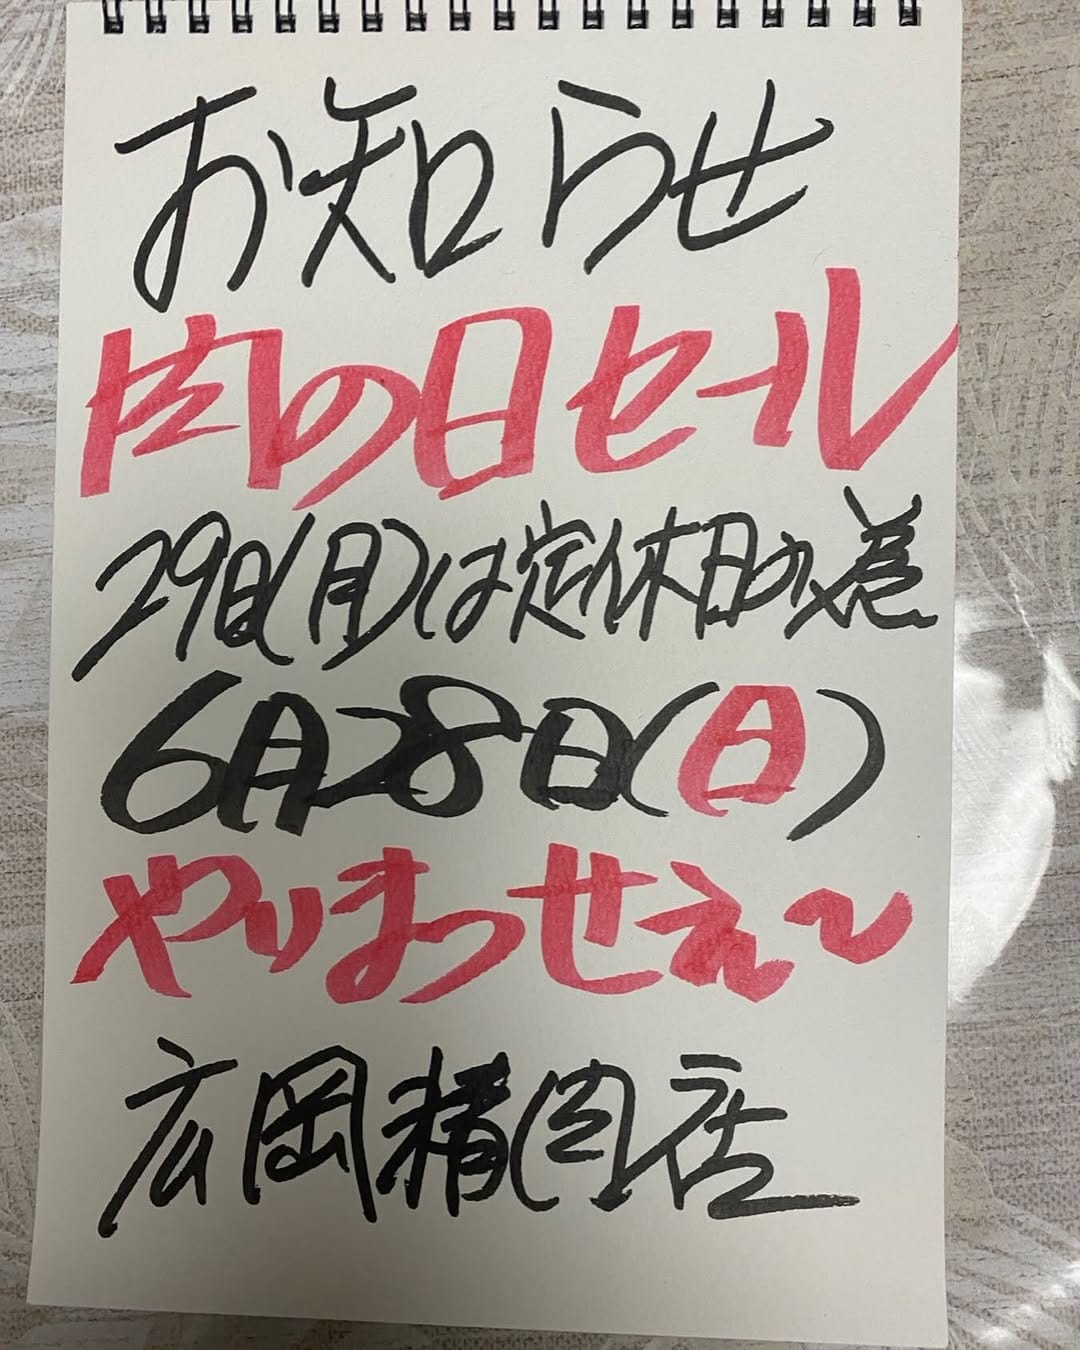 お知らせ
肉の日セール
29日(月)は定休日の為
6月28日(日)
やりまっせぇ～
広岡精肉店